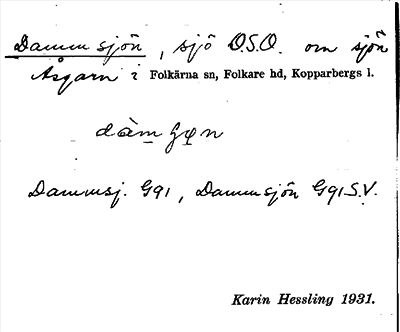 Dammsjön, sjö O.S.O. om sjön
Åsgarn i Folkärna sn, Folkare hd, Kopparbergs l.
dàm̲ʃøn
Dammsj. G91, Dammsjön G91 S.V.
Karin Hessling 1931.